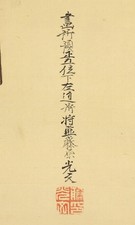 畫所預正五位下左近衞將監藤原光久